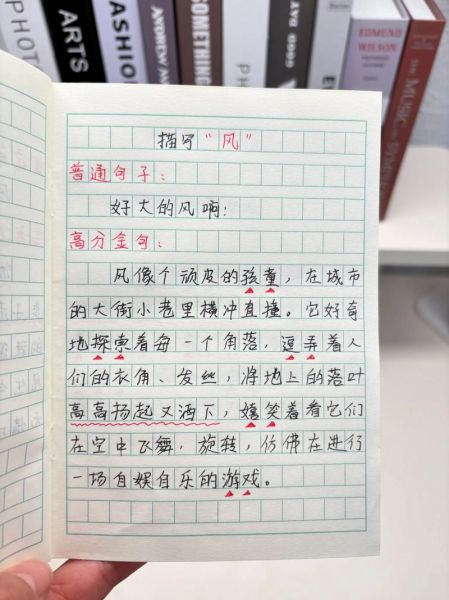 PHOTO
ARTS
FASHION
ANDREW M
SOMETHING
GOOD
EDMUND
WILSON
THE
MUSIC
描写“风”
普通句子：
好大的风啊！
高分金句：
风像个顽皮的孩童，在城市
的大街小巷里横冲直撞。它好奇
地探索着每一个角落，逗弄着人
们的衣角、发丝，将地上的落叶
高高扬起又洒下，嬉笑着看它们
在空中飞舞，旋转，仿佛在进行
一场自娱自乐的游戏。